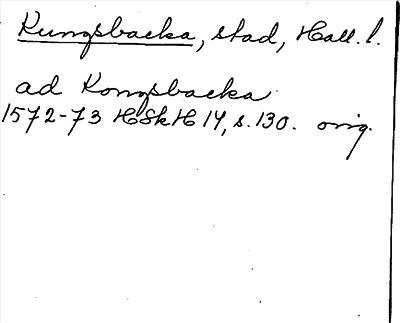 Kungsbacka, stad, Hall. l.
ad Kongsbacka
1572-73 HSkH 14, s. 130. orig.